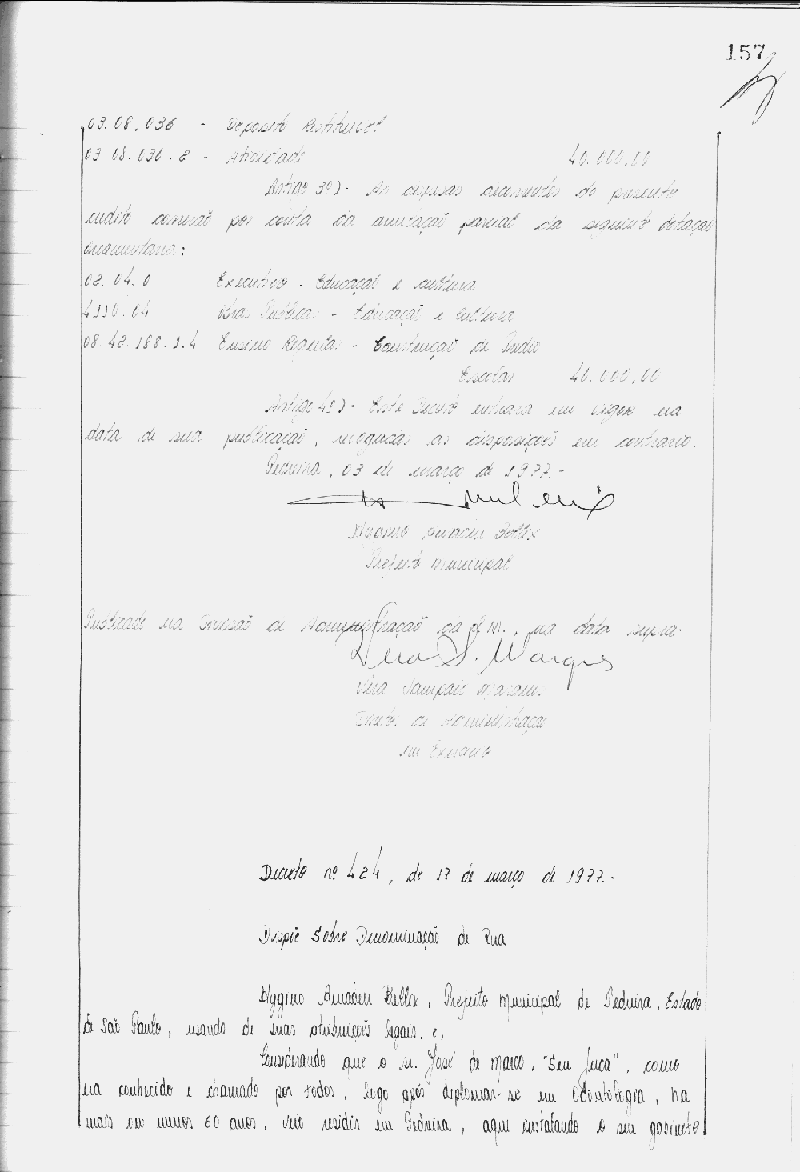 157
03.08.036 - Deposito
03.08.036.2 - Atividade 40.000,00
Artigo 3º)- As despesas do presente
credito por conta da anulação parcial da seguinte dotação
orçamentaria:
02.04.0 Executivo - Educação e cultura
4110.04 Obras Publicas - Educação e Cultura
08 42.188.1.4 Ensino Regular - Construção de Predio
Escolar 40.000,00
Artigo 4º)- Este Decreto entrará em vigor na
data de sua publicação, revogadas as disposições em contrario.
Pedreira, 03 de março de 1977.-
Hygino Amadeu Bellix
Prefeito Municipal
Publicado na Divisão de Administração da P.M., na data supra.
Marques
Sampaio
de Administração
em Exercicio
Decreto nº 424, de 17 de março de 1977.-
Dispõe Sobre Denominação de Rua
Hygino Amadeu Bellix, Prefeito Municipal de Pedreira, Estado
de São Paulo, usando de suas atribuições legais, e,
Considerando que o sr. José de março, "Seu Juca", como
era conhecido e chamado por todos, logo após diplomar-se em Odontologia, há
mais ou menos 60 anos, veio residir em Pedreira, aqui instalando o seu gabinete